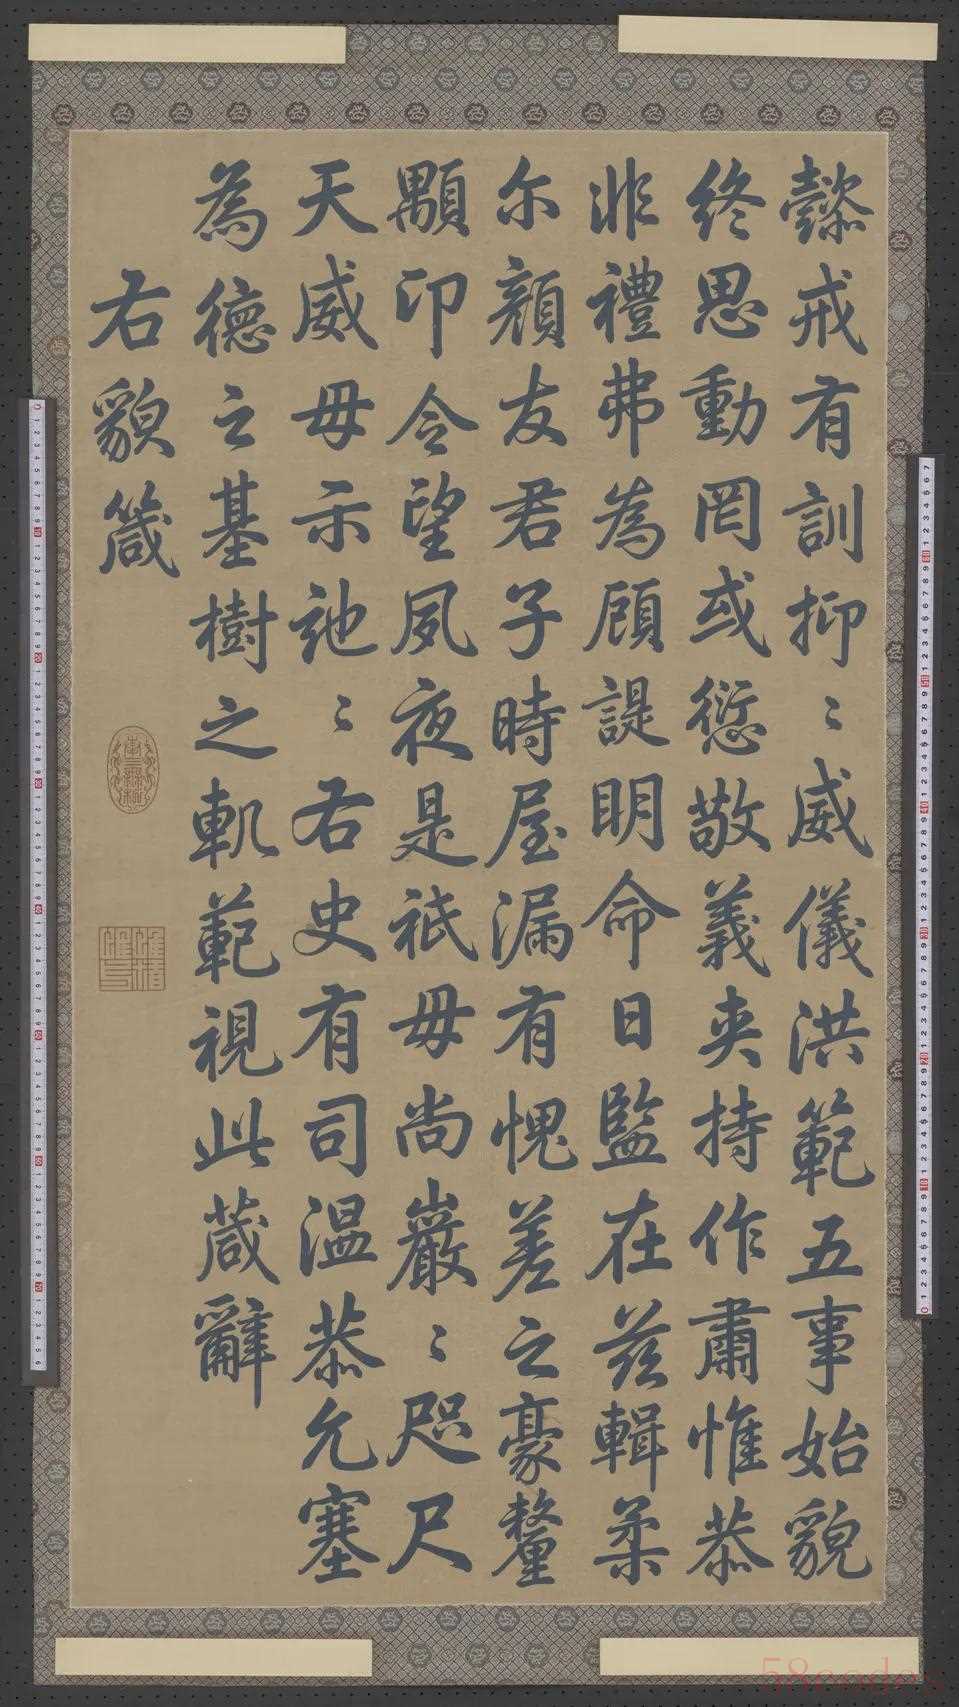 懿戒有訓抑〻威儀洪範五事始貌
終思動罔或愆敬義夾持作肅惟恭
非禮弗為顧諟明命日監在茲輯柔
尔顏友君子時屋漏有愧差之豪釐
顒卬令望夙夜是祗毋尚巖〻咫尺
天威毋示訑〻右史有司温恭允塞
為德之基樹之軌範視此葴辭
右貌箴
奉三無私
惟精惟一